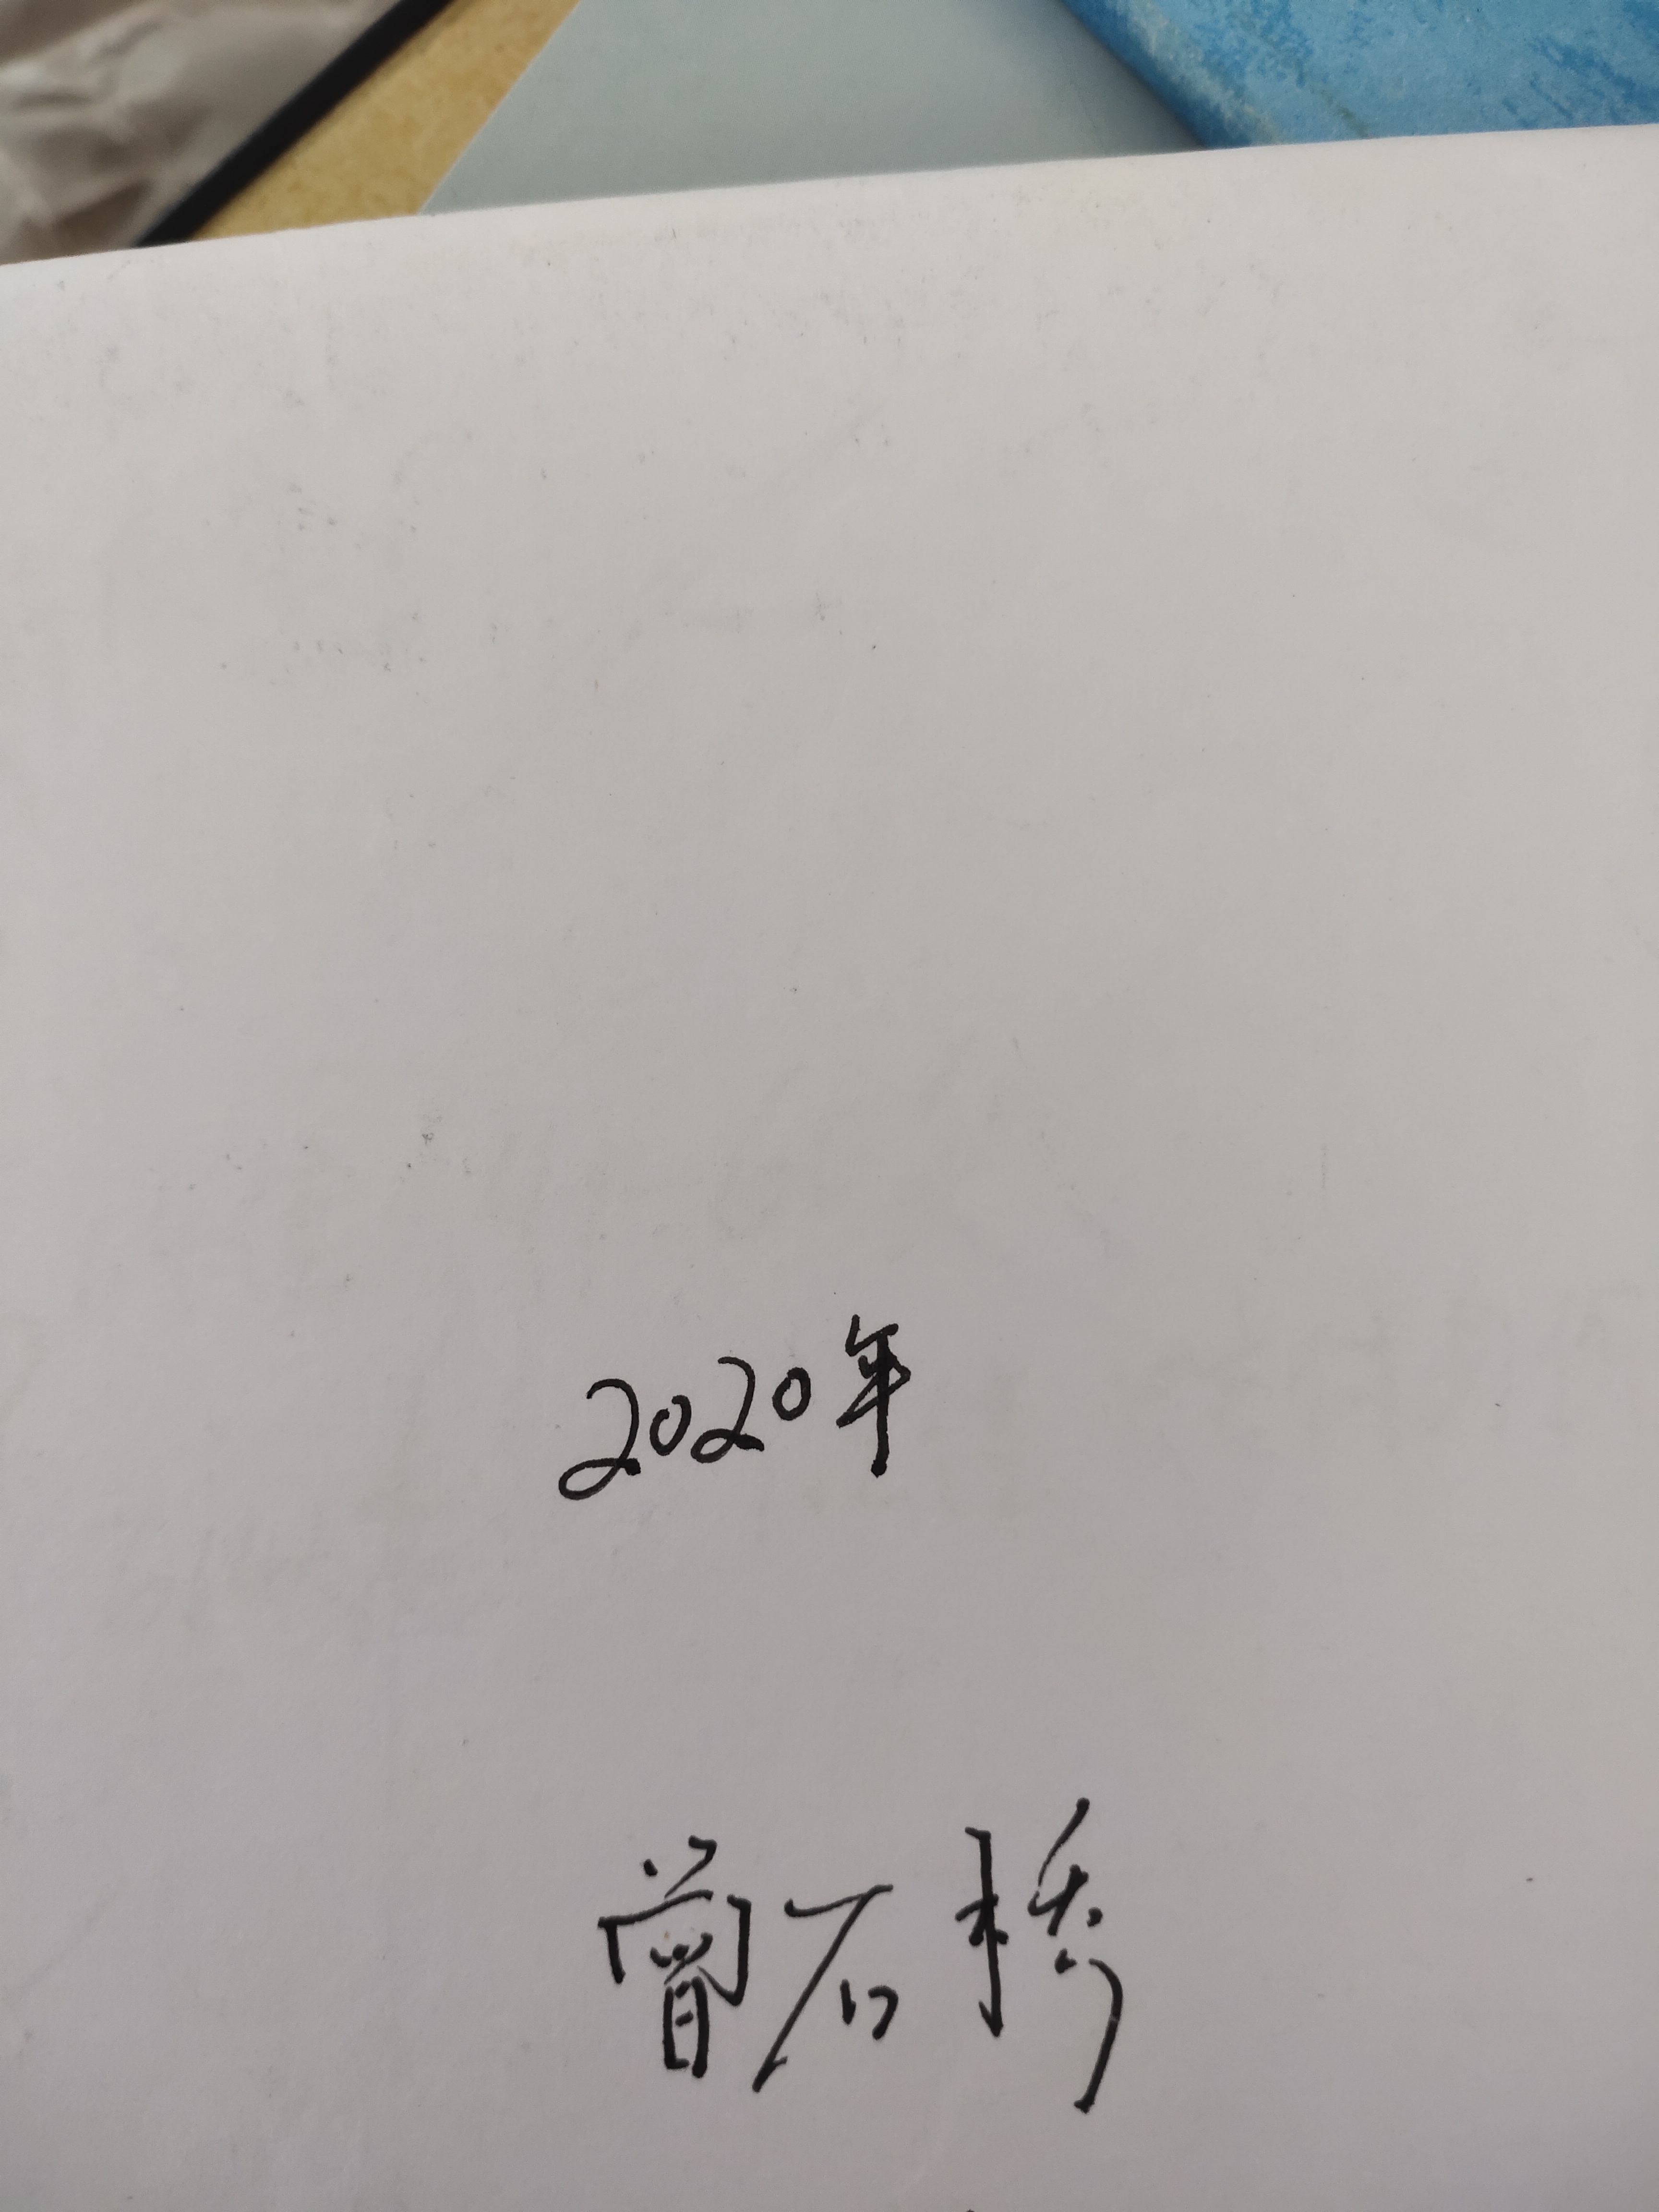 2020年
曾石桥